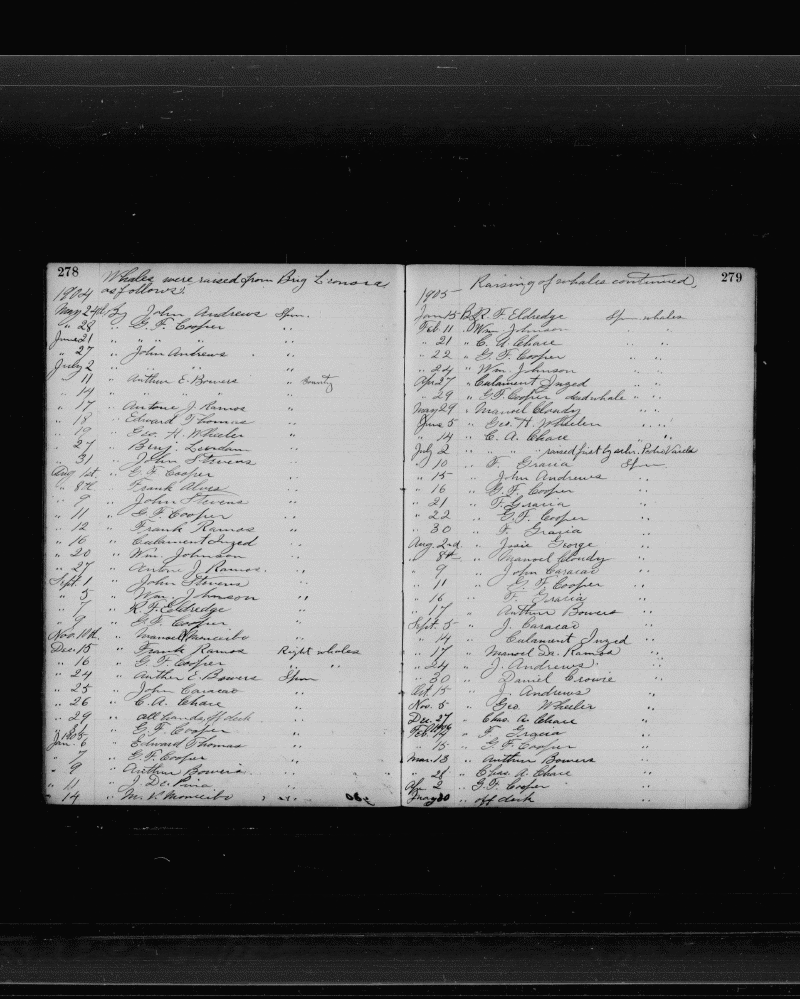 278
Whales were raised from Brig Leonora
1904 as follows:
May 24th By John Andrews Spm.
" 28 " G. F. Cooper "
June 21 " " " " "
" 27 " John Andrews "
July 2 " " " "
" 11 " Arthur E. Bowers " bounty
" 14 " " " " "
" 17 " Antone J. Ramos "
" 18 " Edward Thomas "
" 19 " Geo. H. Wheeler "
" 27 " Benj. "
" 31 " John Stevens "
Aug 1st. " G. F. Cooper "
" 8th " Frank Alves "
" 9 " John Stevens "
" 11 " G. F. Cooper "
" 12 " Frank Ramos "
" 16 " Calament Inzed "
" 20 " Wm. Johnson "
" 27 " Antone J. Ramos. "
Sept. 1 " John Stevens "
" 5 " Wm. Johnson "
" 7 " R. F. Eldredge "
" 9 " G. F. Cooper. "
Nov. 10th. " Manuel "
Dec. 15 " Frank Ramos Right whales
" 16 " G. F. Cooper " "
" 24 " Arther E. Bowers Spm
" 25 " John Caracao "
" 26 " C. A. Chace "
" 29 " all hands off deck "
" 31 " G. F. Cooper "
1905 Jan. 6 " Edward Thomas "
" 7 " G. F. Cooper "
" 9 " Arthur Bowers "
" 11 " De Pina "
" 14 " M. V. "
279
Raising of whales continued,
1905
Jan 15 By R. F. Eldredge Spm whales
Feb. 11 " Wm Johnson " "
" 21 " C. A. Chace " "
" 22 " G. F. Cooper " "
" 24 " Wm. Johnson " "
Apr 27 " Calament Inzed " "
" 29 " G F Cooper dead whale " "
May 29 " Manuel Cloudy " "
June 5 " Geo. H. Wheeler " "
" 14 " C. A. Chace " "
July 2 " " " " raised first by
" 10 " F. Gracia Spm
" 15 " John Andrews "
" 16 " G. F. Cooper "
" 21 " F. Gracia "
" 22 " G. F. Cooper "
" 30 " F. Gracia "
Aug. 2nd. " Josie George "
" 8th " Manoel Cloudy "
" 9 " John Caracao "
" 11 " G. F. Cooper "
" 16 " F. Gracia "
" 17 " Arthur Bowers "
Sept. 5 " J. Caracao "
" 14 " Calament Inzed "
" 17 " Manoel Da. Ramos "
" 24 " J. Andrews "
" 30 " Daniel Crowie "
Oct. 15 " J. Andrews "
Nov. 5 " Geo. Wheeler "
Dec. 27 " Chas. A. Chace "
1906 Feb. 14 " F. Gracia "
" 15 " G. F. Cooper "
Mar. 13 " Arthur Bowers "
" 21 " Chas. A. Chace "
Apr 2 " G. F. Cooper "
May 30 " off deck "